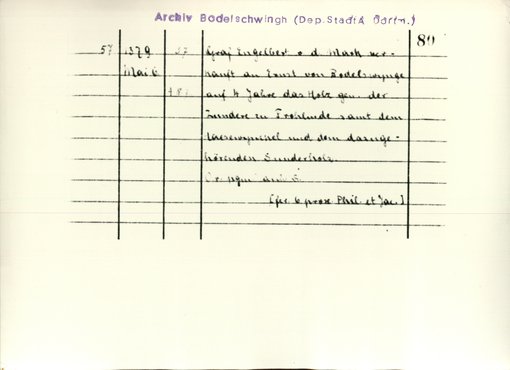 Archiv Bodelschwingh (Dep. StadtA Dortm.)
80
57 1379 27 Graf Engelbert v. d. Mark ver-
Mai 6 kauft an Ernst von Bodelswynge
auf 4 Jahre das Holz gen. der
Sundere zu Frohlinde samt dem
und dem dazuge-
hörenden Sunderholz.
Or. pgm.
[fer. 6 prox. Phil. et Jac.]